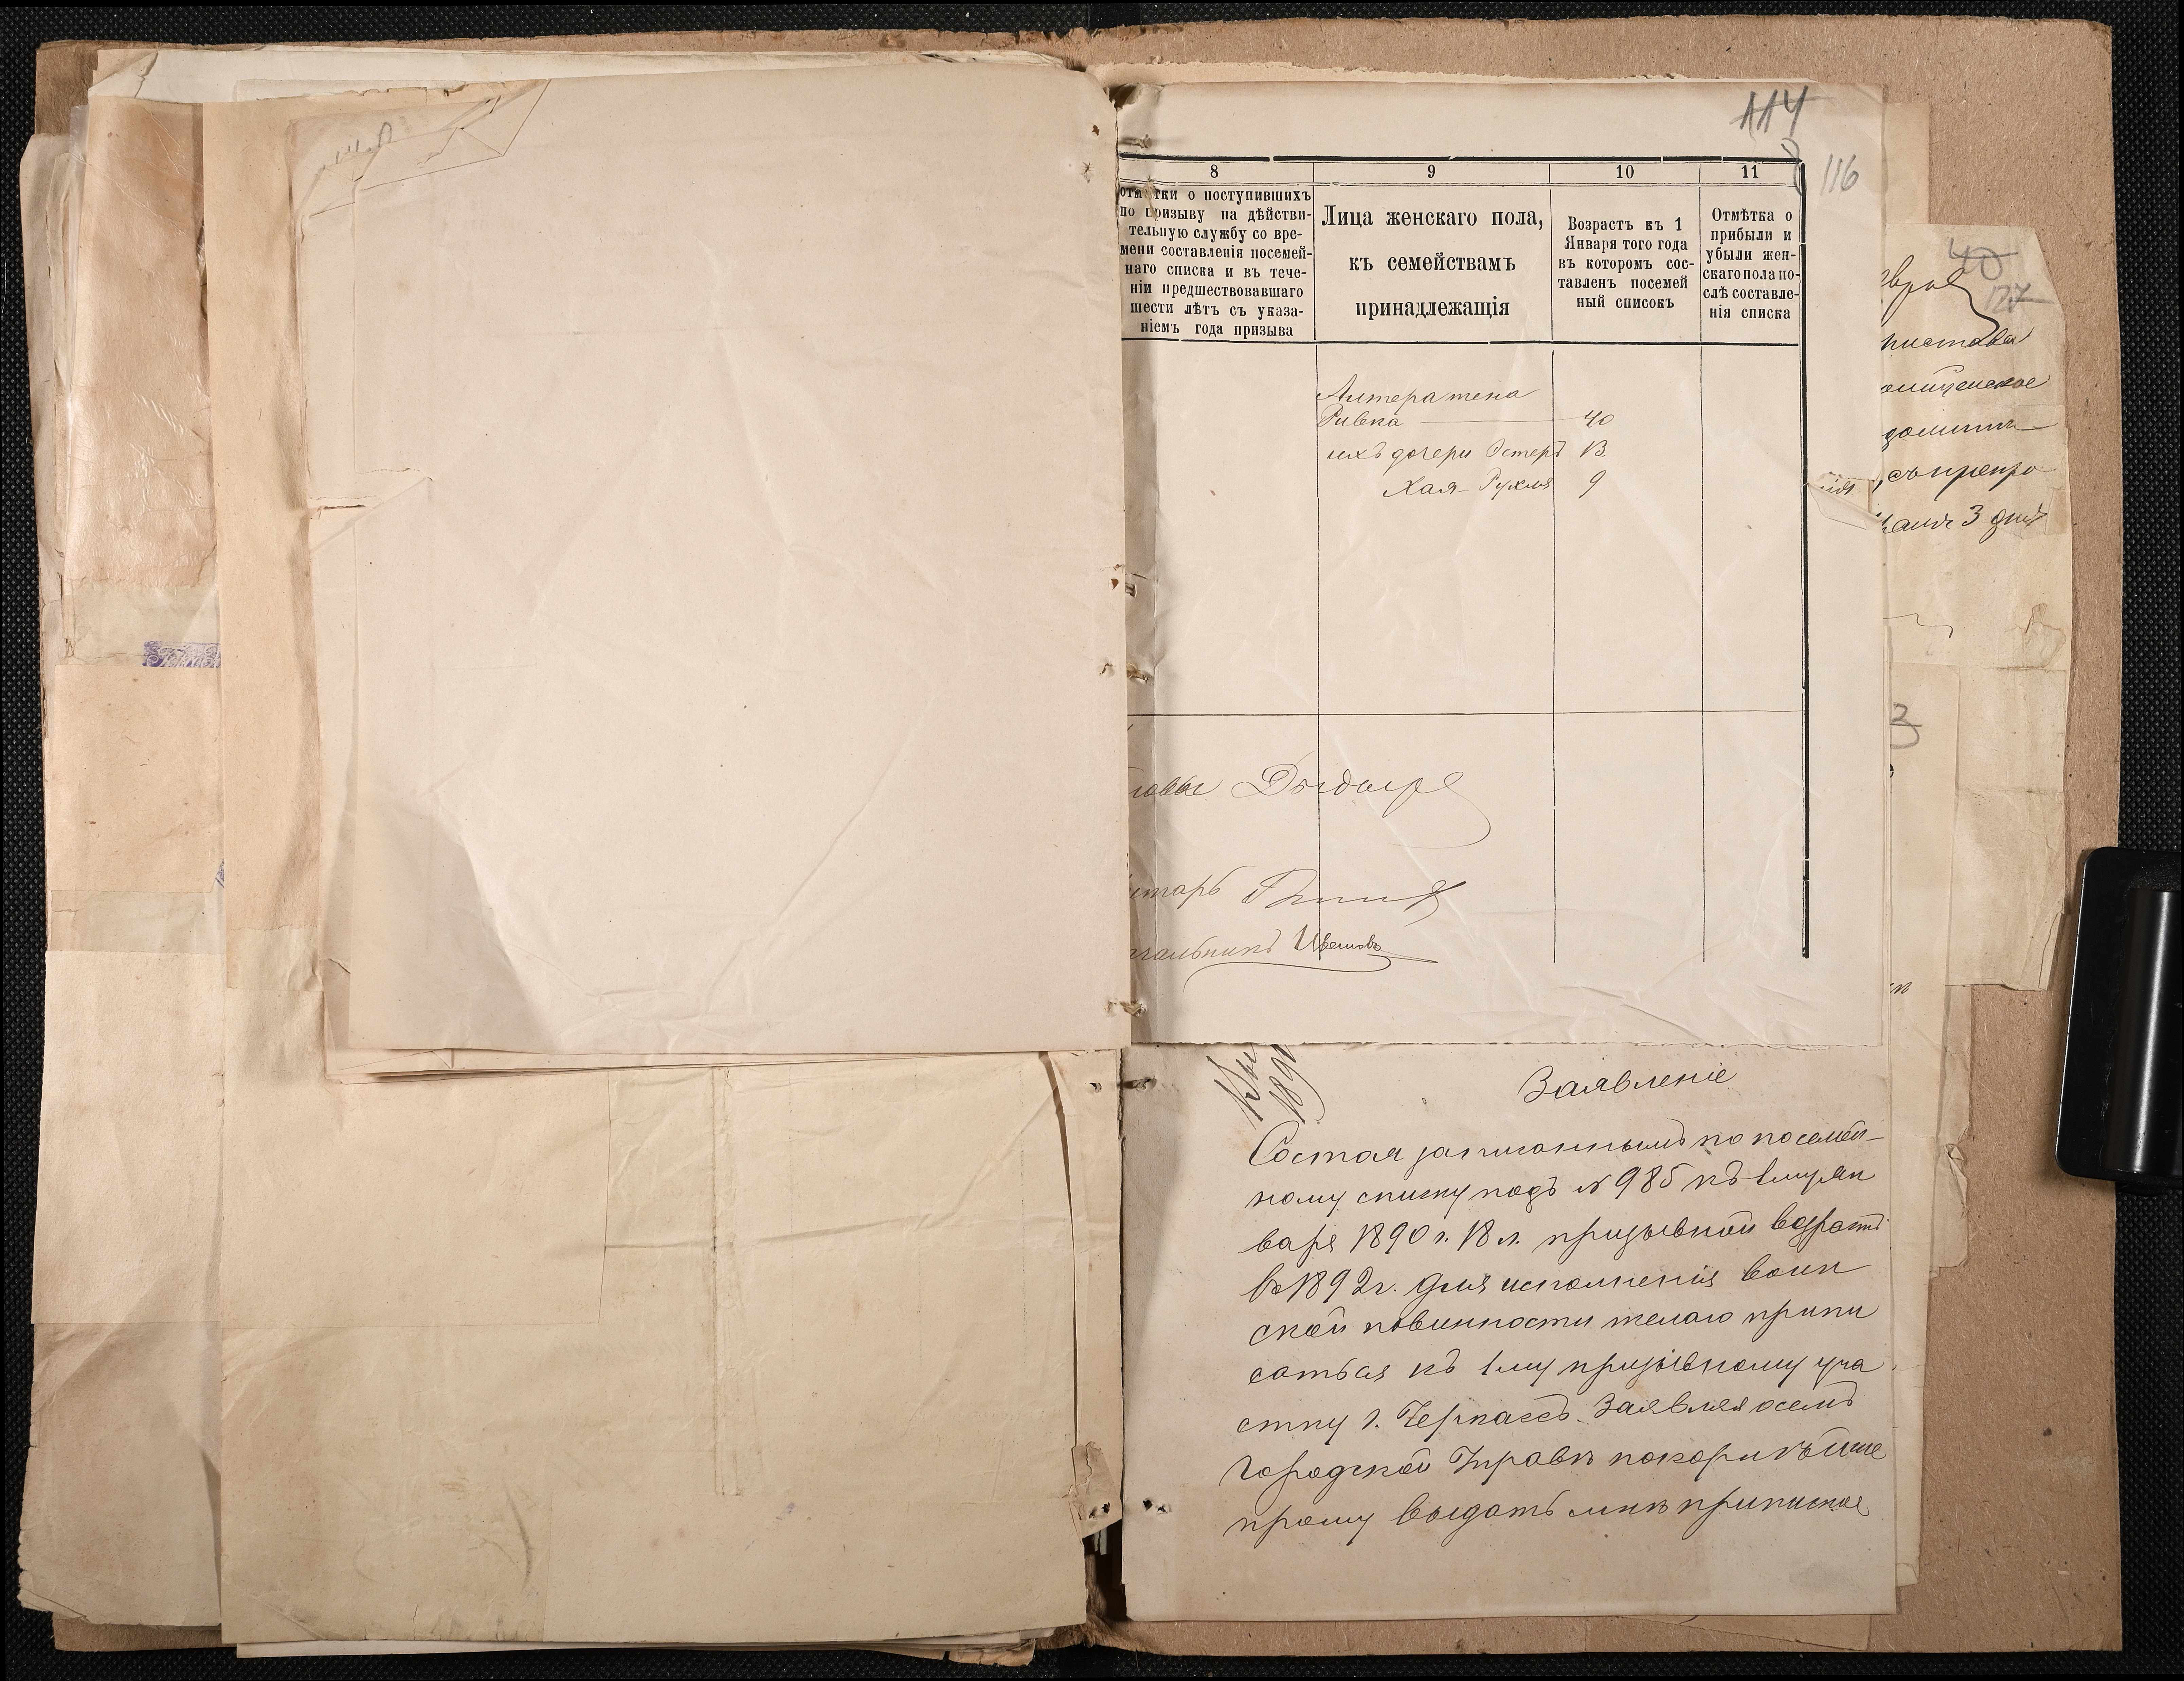 114
116
8
9
10
11
отмѣтки о поступившихъ
по призыву на дѣйстви-
тельную службу со вре-
мени составленія посемей-
наго списка и въ тече-
ніи предшествовавшаго
шести лѣтъ съ указа-
ніемъ года призыва
Лица женскаго пола,
къ семействамъ
принадлежащія
Возрастъ къ 1
Января того года
въ которомъ сос-
тавленъ посемей
ный списокъ
Отмѣтка о
прибыли и
убыли жен-
скаго пола по-
слѣ составле-
нія списка
Алтера жена
Ривка 40
ихъ дочери Эстеръ 13
Хая-Рухля 9
40
127
3 дня
Заявленіе
Состоя записаннымъ по посемей-
ному списку подъ № 985 къ 1му Ян
варя 1890 г. 18 л. призывной возрастъ
въ 1892 г. для исполненія воин
ской повинности желаю припи
саться къ 1му призывному уча
стку г. Черкассъ. Заявляя о семъ
Городской Управѣ покорнѣйше
прошу выдать мнѣ приписное